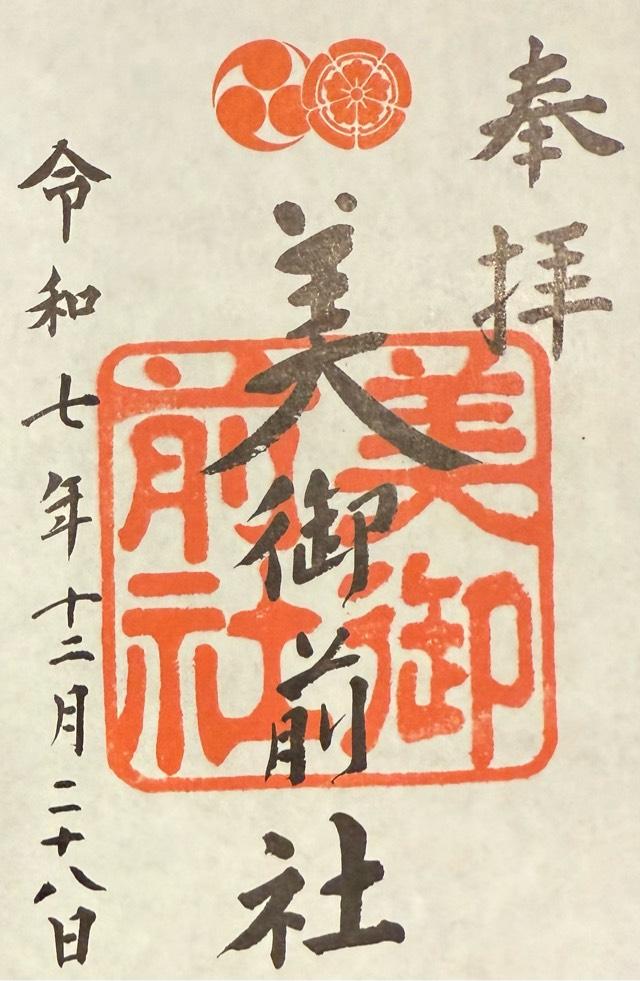 奉拝
美御前社
美御前社
令和七年十二月二十八日